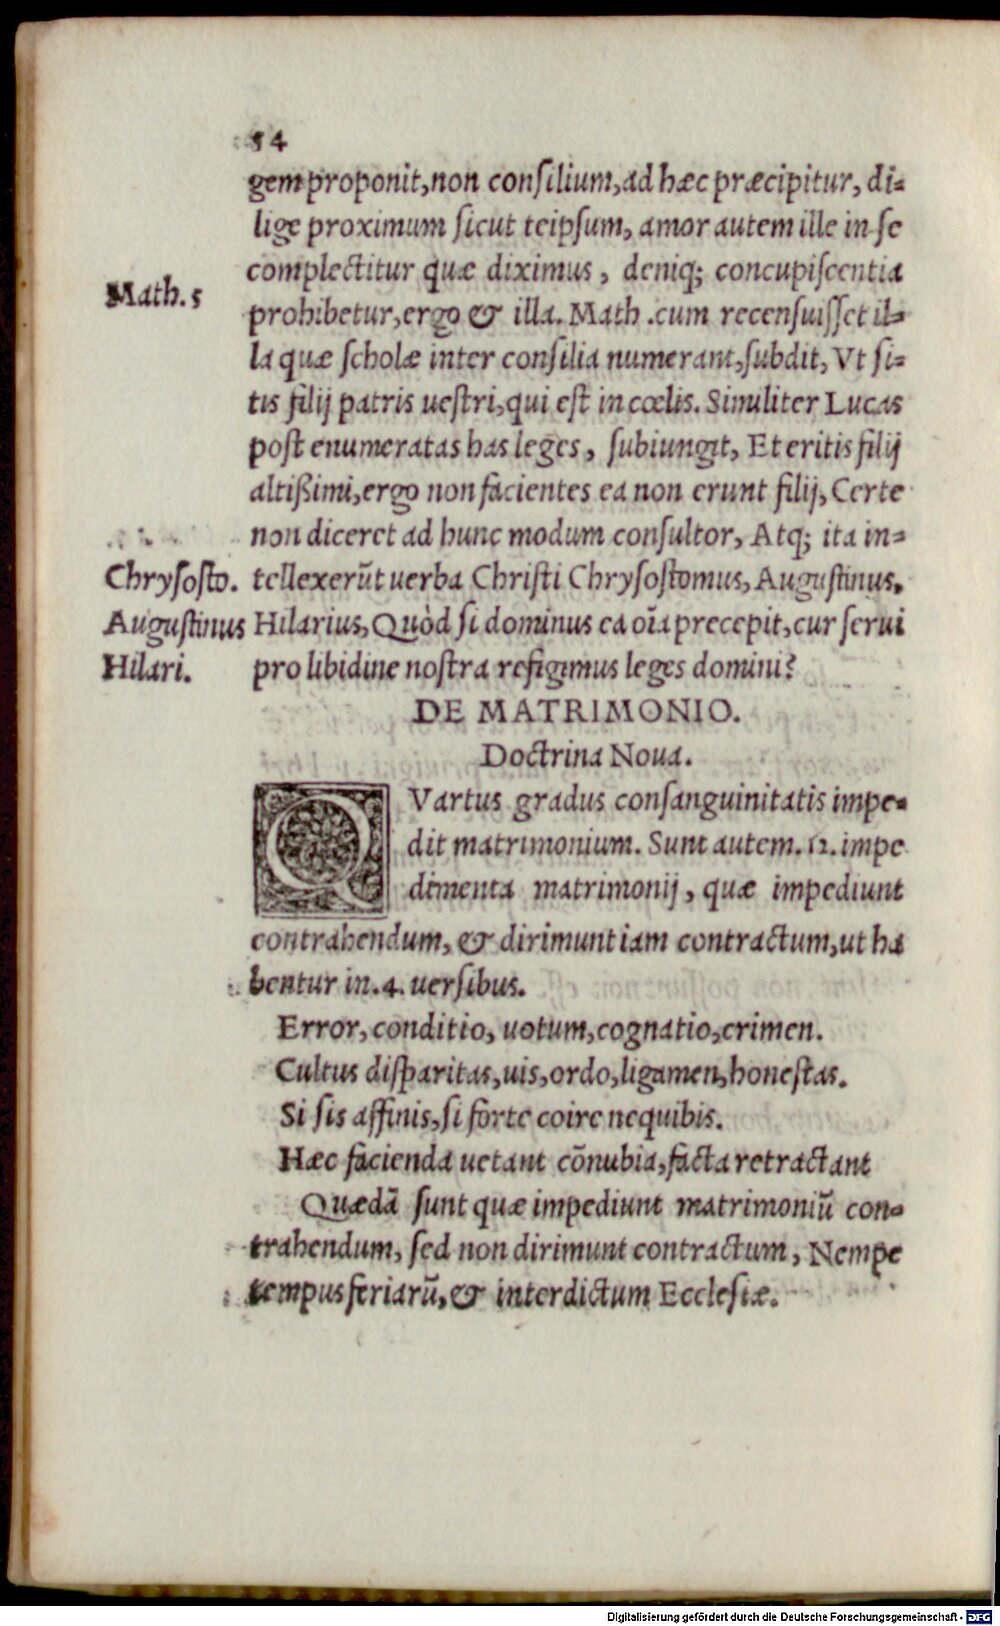 54
gem proponit, non consilium, ad hæc præcipitur, di-
lige proximum sicut teipsum, amor autem ille in se
complectitur quæ diximus, deniq; concupiscentia
Math. 5
prohibetur, ergo & illa. Math .cum recensuisset il-
la quæ scholæ inter consilia numerant, subdit, Vt si-
tis filij patris uestri, qui est in cœlis. Similiter Lucas
post enumeratas has leges, subiungit, Et eritis filij
altißimi, ergo non facientes ea non erunt filij, Certe
non diceret ad hunc modum consultor, Atq; ita in-
Chrysosto.
tellexerũt uerba Christi Chrysostomus, Augustinus.
Augustinus
Hilarius, Quòd si dominus ea oĩa precepit, cur serui
Hilari.
pro libidine nostra refigimus leges domini?
DE MATRIMONIO.
Doctrina Noua.
QVartus gradus consanguinitatis impe-
dit matrimonium. Sunt autem. 12. impe
dimenta matrimonij, quæ impediunt
contrahendum, & dirimunt iam contractum, ut ha
bentur in .4. uersibus.
Error, conditio, uotum, cognatio, crimen.
Cultus disparitas, uis, ordo, ligamen, honestas.
Si sis affinis, si forte coire nequibis.
Hæc facienda uetant cõnubia, facta retractant
Quædã sunt quæ impediunt matrimoniũ con-
trahendum, sed non dirimunt contractum, Nempe
tempus feriarũ, & interdictum Ecclesiæ.
Digitalisierung gefördert durch die Deutsche Forschungsgemeinschaft - DFG